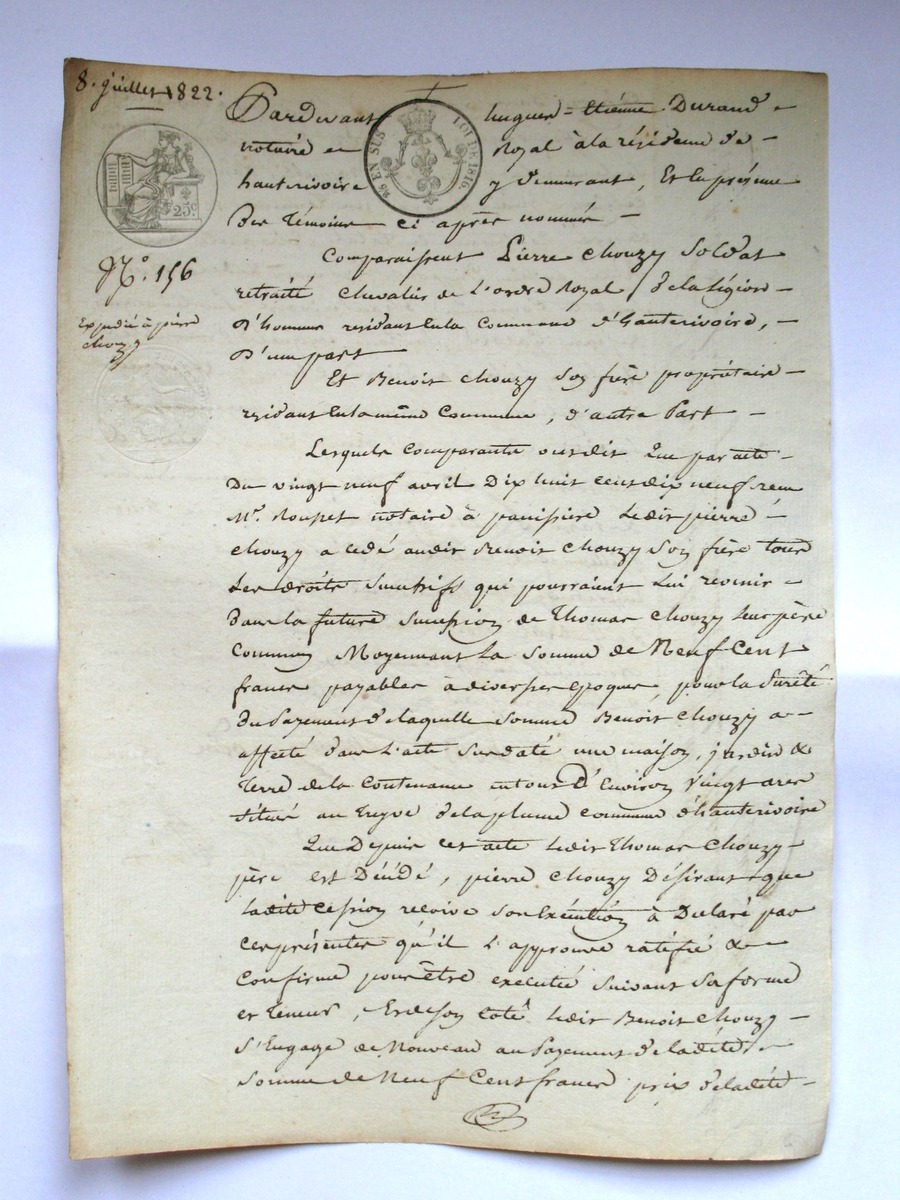 8. juillet 1822.
Pardevant hugues = Etienne Durand =
notaire Royal à la résidence de =
hauterivoire y demeurant, Et en présence
des témoins ci après nommés —
EN SUS LOI DE 1816.
25c
N.° 156
Expédié à pierre
chouzy
Comparaissent Pierre Chouzy Soldat
retraité chevalier de L'ordre Royal de la légion =
d'honneur residant en la commune d'hauterivoire, =
D'une part
Et Benoit Chouzy Son frère propriétaire =
residant en la même commune, d'autre Part =
Lesquels Comparants ont dit Que par acte =
Du vingt neuf avril Dix huit cent dix neuf recu
Mr. notaire à panissiere Ledit pierre =
chouzy a cédé audit Benoit Chouzy Son frère tous
Les droits Successifs qui pourraient Lui revenir =
dans la future Succession de Thomas Chouzy leur père
commun Moyennant La Somme de Neuf Cent
francs payables à diverses epoques, pour la Sureté
du Payement de laquelle Somme Benoit Chouzy a =
affecté dans L'acte Susdaté une maison, jardin &
Terre de la Contenance en tout D'Environ Vingt ares
Situés au de la plume commune d'hauterivoire
Que Depuis cet acte Ledit Thomas Chouzy =
père est Décédé, pierre Chouzy Désirant que
Ladite Cession recoive Son Exécution à Declaré par
ces présentes qu'il L'approuve ratifie & =
Confirme pour être executée Suivant Sa forme
et Teneur, Et de Son Coté Ledit Benoit Chouzy =
S'Engage de Nouveau au Payement de ladite =
Somme de Neuf Cent francs prix de ladite =